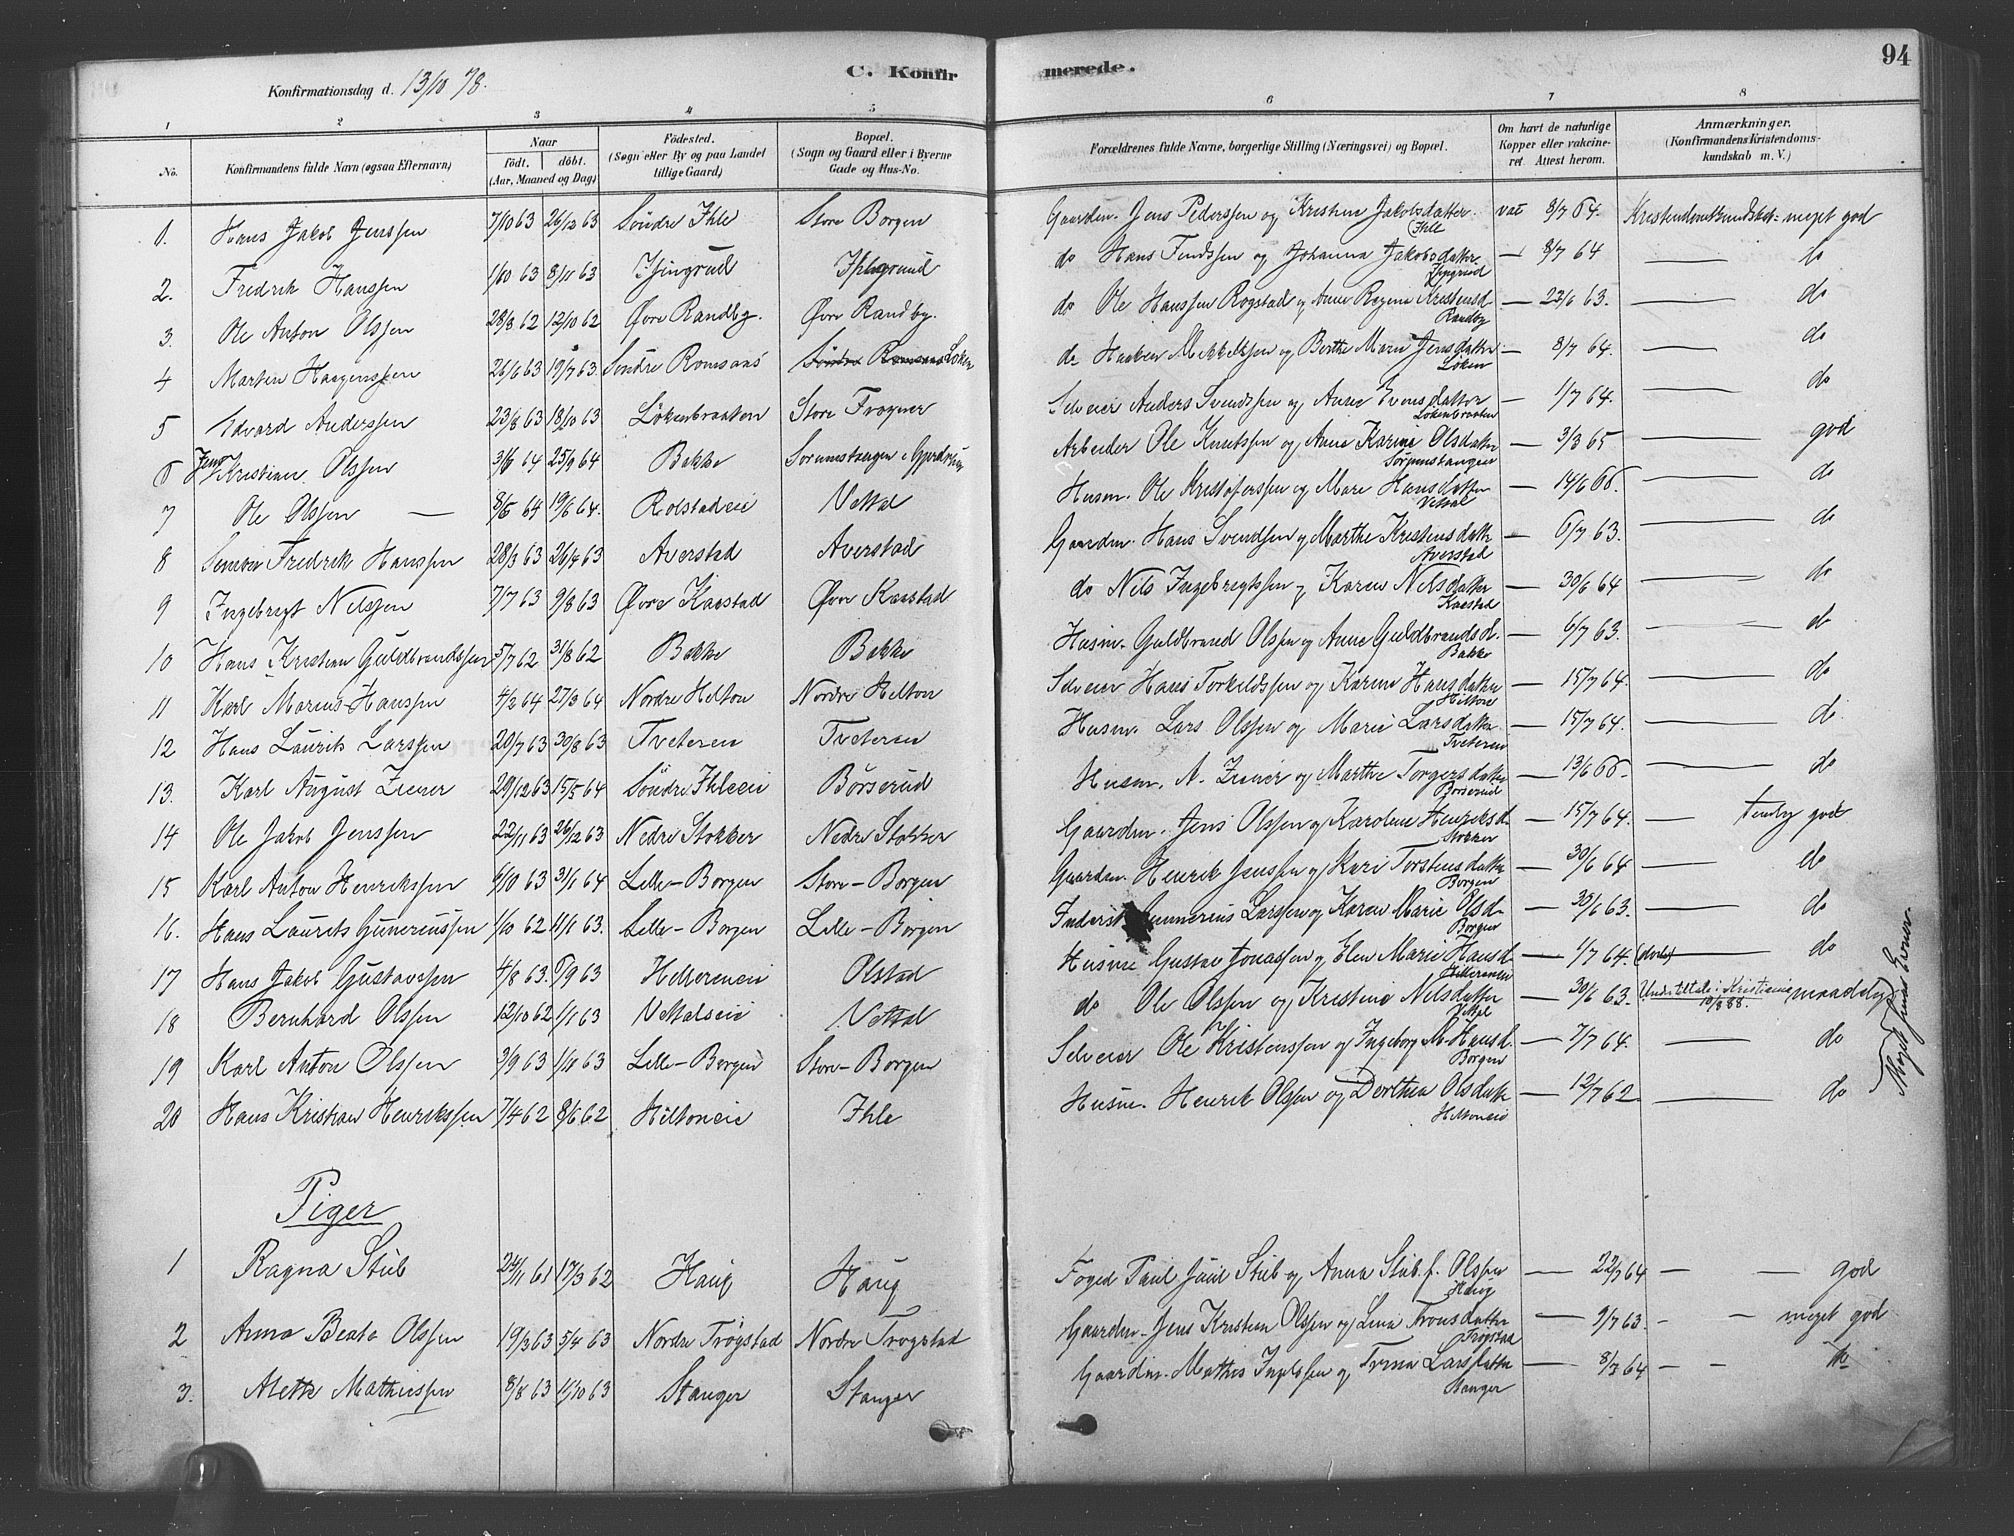 94
C. Konfir merede.
Konfirmationsdag d. 13/10 78.
1 2 3 4 5 6 7 8
No. Konfirmandens fulde Navn (ogsaa Efternavn) Naar födt. döbt. (Aar, Maaned og Dag) Födested. (Sogn eller By og paa Landet tillige Gaard) Bopæl. (Sogn og Gaard eller i Byerne Gade og Hus-No. Forældrenes fulde Navne, borgerlige Stilling (Næringsvei) og Bopæl. Om havt de naturlige Kopper eller vakcineret. Attest herom. Anmærkninger. (Konfirmandens Kristendomskundskab m. V.)
1. Hans Jakob Jenssen 7/10 63 26/12 63 Söndre Ihle Store Borgen Gaardm. Jens Pederssen og Kristine Jakobsdatter Ihle vac 8/7 64. Kristendomskundskab: meget god
2. Fredrik Hanssen 1/10 63 8/11 63 do Hans Findssen og Johanna Jakobsdatter — 8/7 64 — do
3. Ole Anton Olssen 28/8 62 12/10 62 Øvre Randby. Øvre Randby. do Ole Hanssen Rogstad og Anne Regine Kristensd. Randby — 22/6 63. — do
4 Marten Haagenssen 26/6 63 19/7 63 Söndre Romsaas Söndre Romsaas Löken do Haaken Mikkelssen og Berthe Marie Jensdatter Löken — 8/7 64. — do
5 Edvard Anderssen 23/8 63 18/10 63 Lökenbraaten Store Frogner Selveier Anders Svendssen og Anne Evensdatter Lökenbraaten — 1/7 64. — do
6 Jens Kristian Olssen 3/6 64 25/9 64 Bakke Sørumstangen i Gjerdrum Arbeider Ole Knutssen og Anne Karine Olsdatter Sørumstangen — 3/3 65 — god
7 Ole Olssen — 8/5 64 19/6 64. Rolstadeie Vettal Husm. Ole Kristoferssen og Mari Hansdatter Vettal — 14/6 66. — do
8 Fredrik Hanssen 28/3 63 26/4 63 Averstad Averstad Gaardm. Hans Svendssen og Marthe Kristensdatter Averstad — 6/7 63. — do
9 Ingebregt Nilssen 7/7 63 9/8 63 Øvre Kaastad Øvre Kaastad do Nils Ingebregtssen og Karen Nilsdatter Kaastad — 30/6 64 — do
10 Hans Kristian Guldbrandssen 5/7 62 31/8 62 Bakke Bakke Husm. Guldbrand Olssen og Anne Guldbrandsd. Bakke — 6/7 63. — do
11 Karl Marius Hanssen 4/2 64 27/3 64 Nordre Hilton Nordre Hilton Selveier Hans Torkildssen og Karen Hansdatter Hilton — 15/7 64. — do
12 Hans Laurits Larssen 20/7 63 30/8 63 Tveteren Tveteren Husm. Lars Olssen og Marie Larsdatter Tveteren — 15/7 64. — do
13. Karl August Ziener 29/12 63 15/5 64 Söndre Ihleeie Börserud Husm. N. Ziener og Marthe Torgersdatter Börserud — 13/6 66. — do
14 Ole Jakob Jenssen 22/11 63 26/12 63 Nedre Stokker Nedre Stokker Gaardm. Jens Olssen og Karoline Henriksd. Stokker — 15/7 64. — temlig god
15 Karl Anton Henrikssen 6/10 63 31/1 64 Lille-Borgen Store-Borgen Gaardm. Henrik Jenssen og Kari Torstensdatter Borgen — 30/6 64 — do
16. Hans Laurits Gunerius­sen 1/10 62 11/1 63. Lille-Borgen Lille-Borgen Inderst Gunnerius Larssen og Karen Marie Olsd. Borgen — 30/6 63. — do
17 Hans Jakob Gustavssen 4/8 63. 6/9 63 Olstad Husm. Gustav Jonassen og Elen Marie Hansd. — 1/7 64. — do
18 Bernhard Olssen 12/10 62 1/1 63 Vettaleie Vettal do Ole Olssen og Kristine Nilsdatter Vettal — 30/6 63. Kristiania 10/8 88. maadelig
19 Karl Anton Olssen 3/9 63 1/11 63 Lille-Borgen Store-Borgen Selveier Ole Kristenssen og Ingeborg M. Hansd. Borgen — 7/7 64. — do
20 Hans Kristian Henrikssen 7/4 62 8/6 62 Hiltoneie Ihle Husm. Henrik Olssen og Dorthea Olsdatter Hiltoneie — 12/7 62. — do
Piger
1 Ragna Stub 24/11 61 17/3 62 Haug Haug Foged Paul Juul Stub og Anna Stub f. Olssen Haug — 22/7 64 — god
2 Anna Beata Olssen 19/3 63 5/4 63 Nordre Trögstad Nordre Trogstad Gaardm. Jens Kristian Olssen og Lina Tronsdatter Trogstad — 9/7 63. — meget god
3. Alette Mathissen 8/8 63 11/10 63 Stanger Stanger Gaardm. Mathis Ingelssen og Trina Larsdatter Stanger — 8/7 64 — do